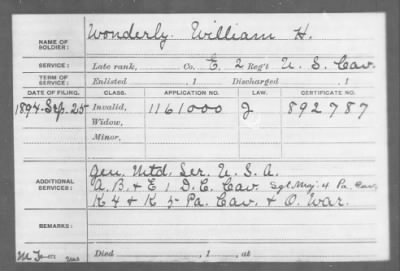 NAME OF SOLDIER: Wonderly. William H.
SERVICE: Late rank, Co. E. 2 Reg't U. S. Cav.
TERM OF SERVICE: Enlisted , 1 Discharged , 1
DATE OF FILING. CLASS. APPLICATION NO. LAW. CERTIFICATE NO.
1894 Sep. 25 Invalid, 1161000 J 892787
Widow,
Minor,
ADDITIONAL SERVICES: Gen. Mtd. Ser. U. S. A.
A. B. & E 1 D. C. Cav. Sgt Maj. 4 Pa. Cav.
K 4 & K 5 - Pa. Cav. & O. War.
REMARKS:
Died , 1 , at